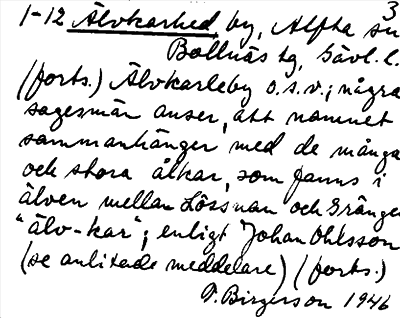 3
1-12 Älvkarhed, by, Alfta sn
Bollnäs tg, Gävl. l.
(forts.) Älvkarleby o.s.v.; några
sagesmän anser, att namnet
sammanhänger med de många
och stora ålkar, som fanns i
älven mellan Lössnan och Grängen
"älv-kar"; enligt Johan Ohlsson
(se anlitade meddelare) (forts.)
Birgerson 1946